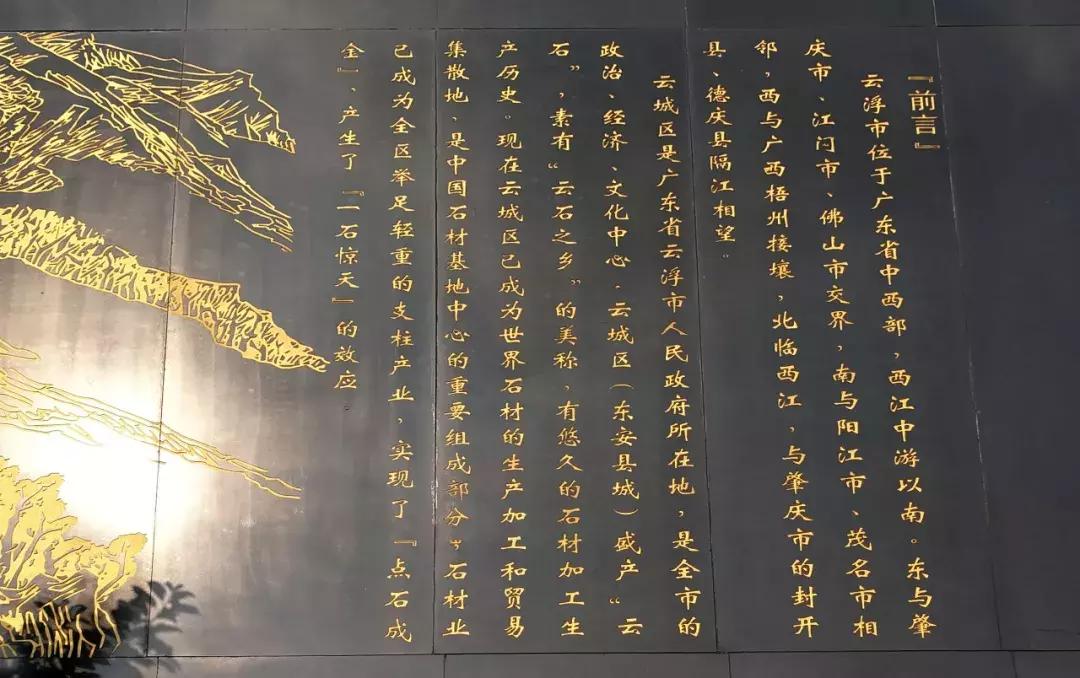 『前言』
云浮市位于广东省中西部，西江中游以南。东与肇
庆市、江门市、佛山市交界，南与阳江市、茂名市相
邻，西与广西梧州接壤，北临西江，与肇庆市的封开
县、德庆县隔江相望。
云城区是广东省云浮市人民政府所在地，是全市的
政治、经济、文化中心。云城区（东安县城）盛产“云
石”，素有“云石之乡”的美称，有悠久的石材加工生
产历史。现在云城区已成为世界石材的生产加工和贸易
集散地，是中国石材基地中心的重要组成部分，石材业
已成为全区举足轻重的支柱产业，实现了『点石成
金』、产生了『一石惊天』的效应。